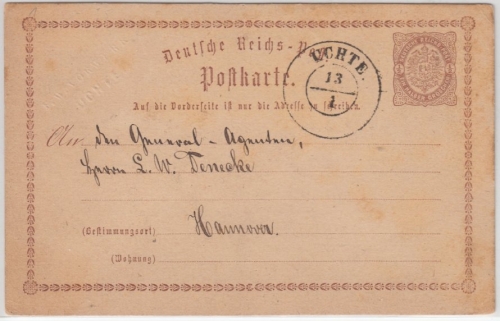 Deutsche Reichs-P
UCHTE.
13
1
Postkarte.
Auf die Vorderseite ist nur die Adresse zu schreiben.
An den General-Agenten,
Herrn L. W. Denecke
Hannover.
(Bestimmungsort)
(Wohnung)